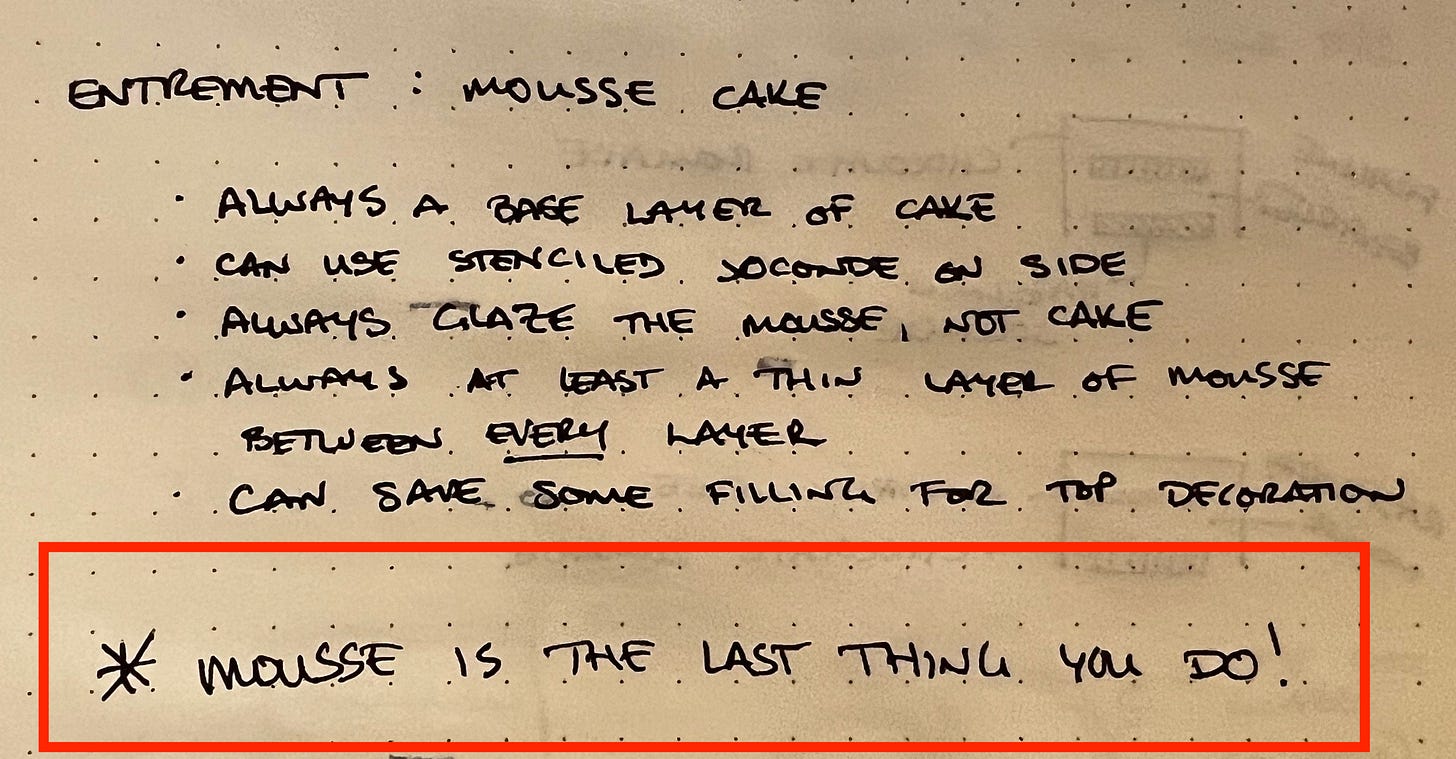 ENTREMENT : MOUSSE CAKE
· ALWAYS A BASE LAYER OF CAKE
· CAN USE STENCILED JOCONDE ON SIDE
· ALWAYS GLAZE THE MOUSSE, NOT CAKE
· ALWAYS AT LEAST A THIN LAYER OF MOUSSE
BETWEEN EVERY LAYER
· CAN SAVE SOME FILLING FOR TOP DECORATION
* MOUSSE IS THE LAST THING YOU DO!